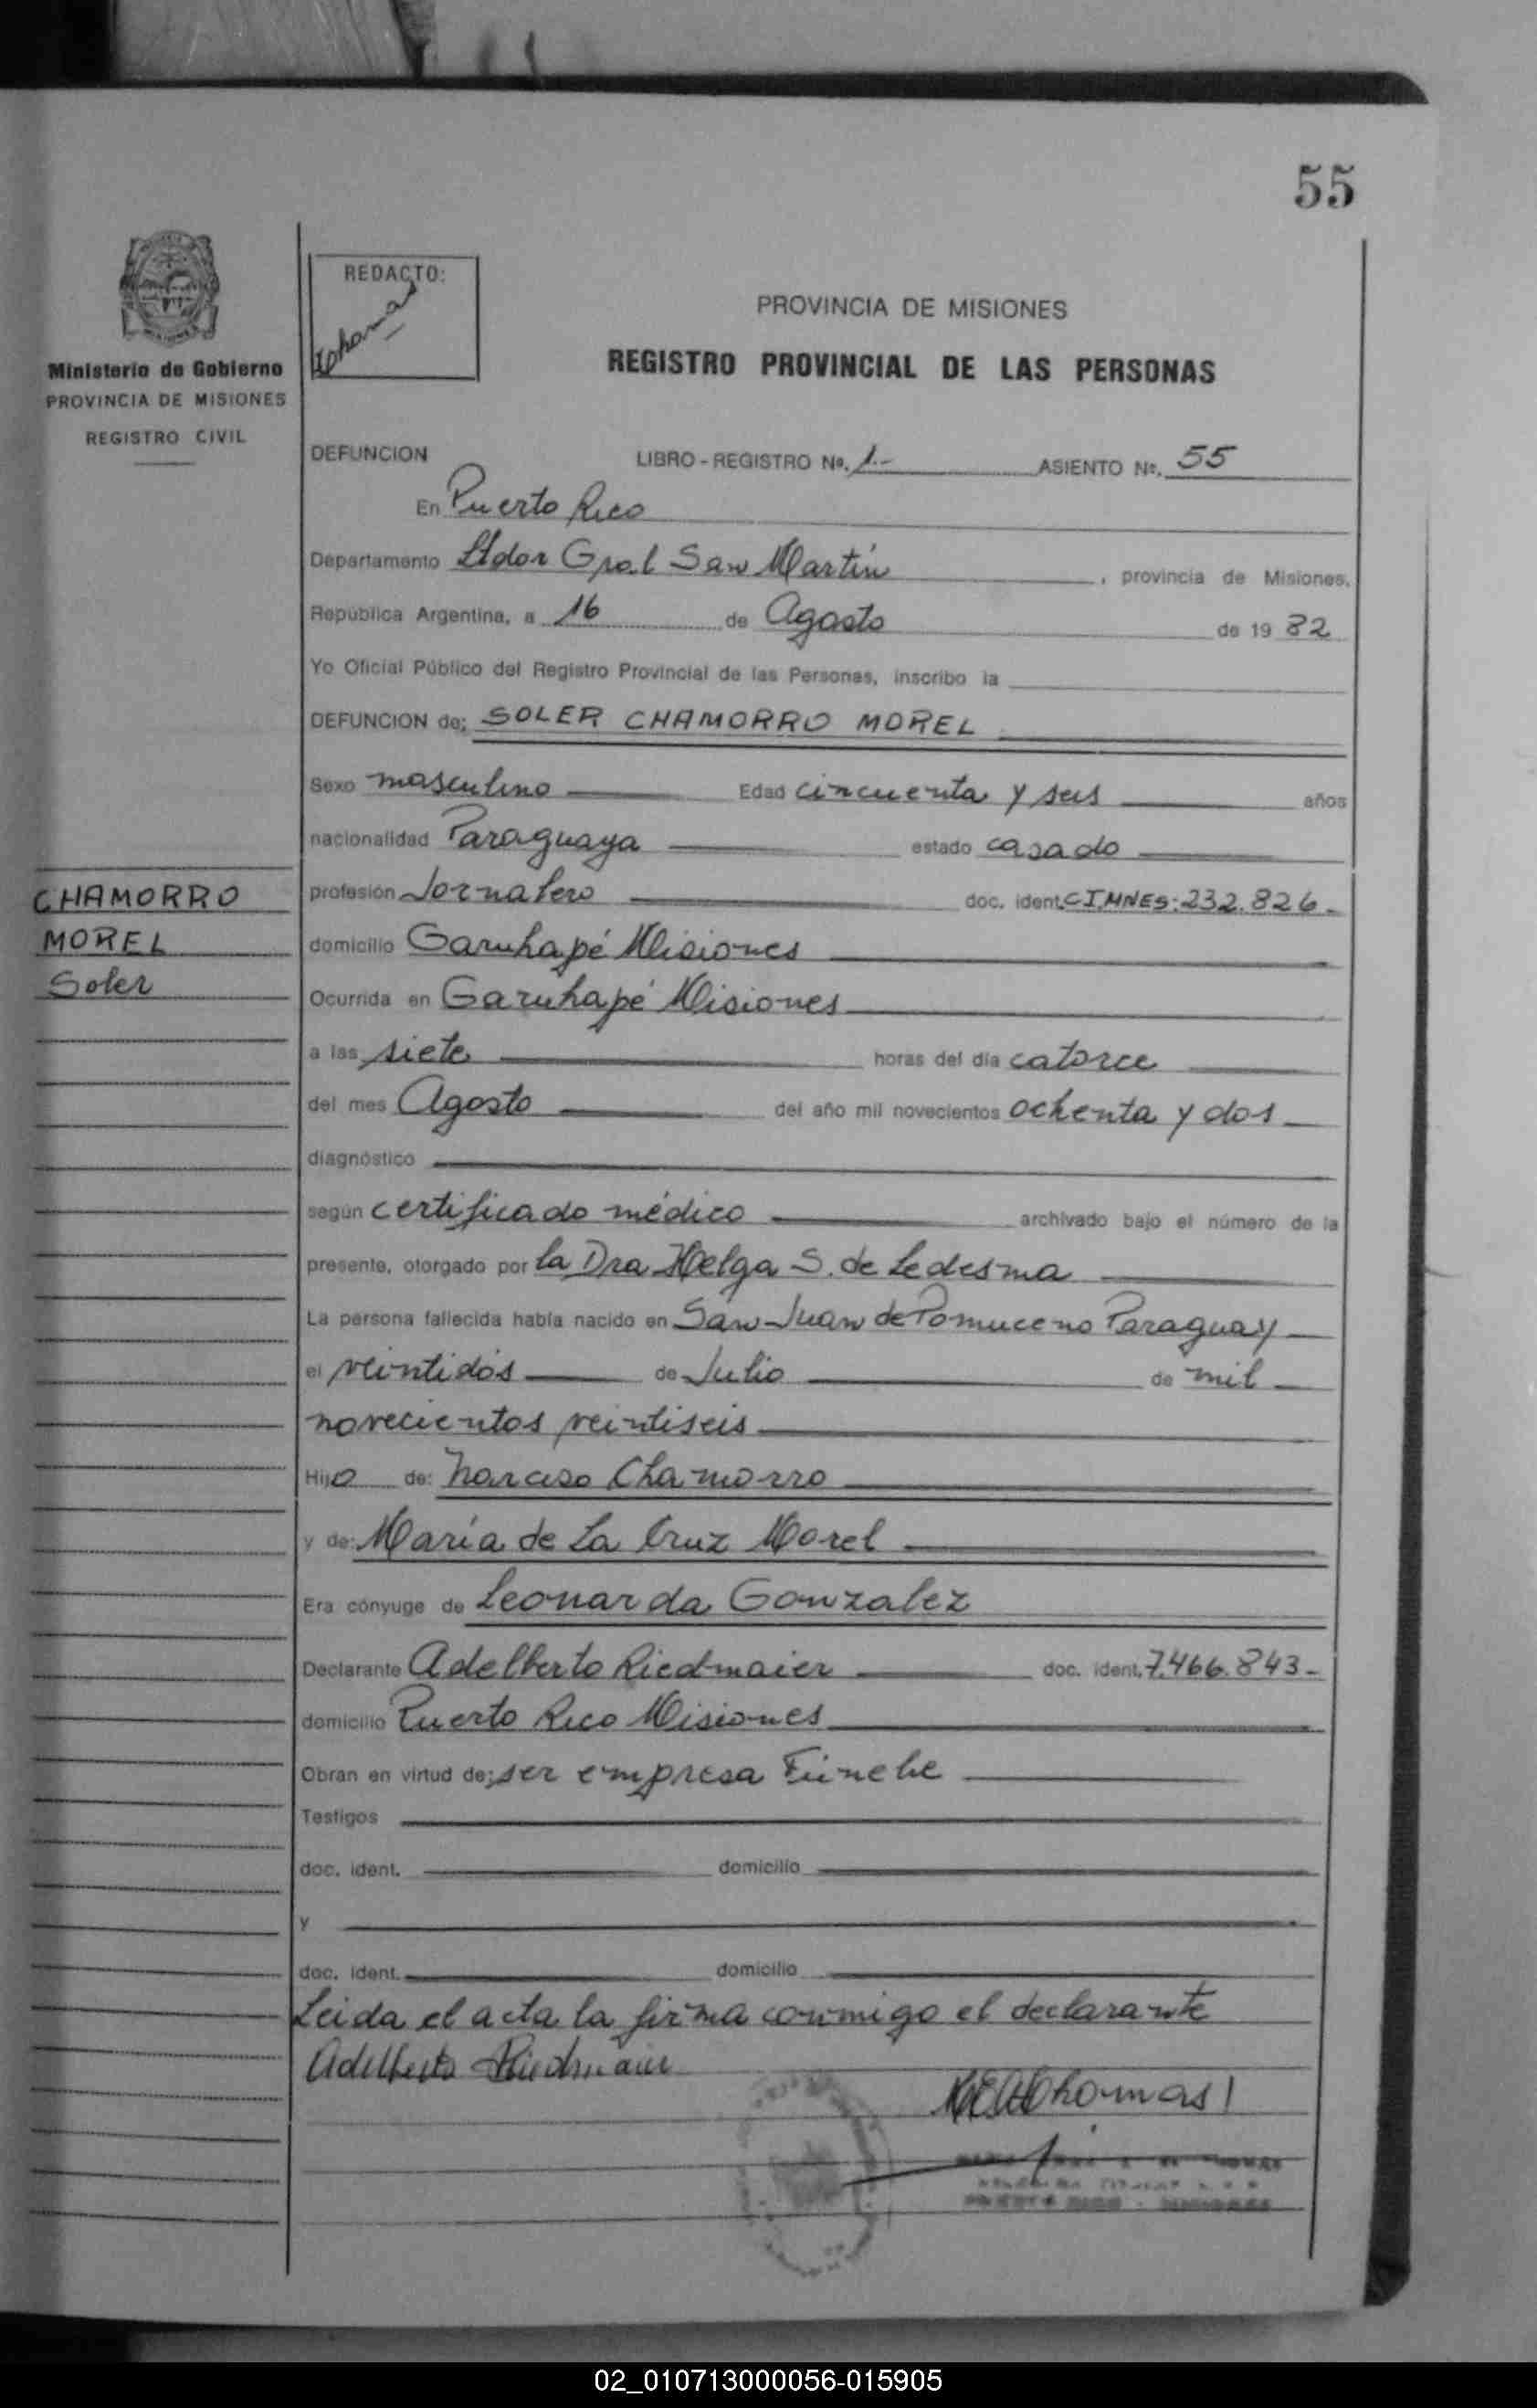 55
REDACTO:
Thomas
Ministerio de Gobierno
PROVINCIA DE MISIONES
REGISTRO CIVIL
PROVINCIA DE MISIONES
REGISTRO PROVINCIAL DE LAS PERSONAS
DEFUNCION LIBRO - REGISTRO Nº. 1.- ASIENTO Nº. 55
En Puerto Rico
Departamento Ltdor Gral San Martín, provincia de Misiones,
República Argentina, a 16 de Agosto de 19 82
Yo Oficial Público del Registro Provincial de las Personas, inscribo la
DEFUNCION de: SOLER CHAMORRO MOREL
Sexo masculino Edad cincuenta y seis años
nacionalidad Paraguaya estado casado
CHAMORRO
MOREL
Soler
profesión Jornalero doc. ident. C.I.MNES: 232.826.-
domicilio Garuhapé Misiones
Ocurrida en Garuhapé Misiones
a las siete horas del día catorce
del mes Agosto del año mil novecientos ochenta y dos
diagnóstico
según certificado médico archivado bajo el número de la
presente, otorgado por la Dra Helga S. de Ledesma
La persona fallecida había nacido en San Juan de Pomuceno Paraguay
el veintidós de Julio de mil
novecientos veintiseis
Hijo de: Narciso Chamorro
y de: María de La Cruz Morel
Era cónyuge de Leonarda Gonzalez
Declarante Adelberto Riedmaier doc. ident. 7.466.843-
domicilio Puerto Rico Misiones
Obran en virtud de: ser empresa Fúnebe
Testigos
doc. ident. domicilio
y
doc. ident. domicilio
Leida el acta la firma conmigo el declarante
Adelberto Riedmaier
Thomas
PUERTO RICO - MISIONES
02_010713000056-015905